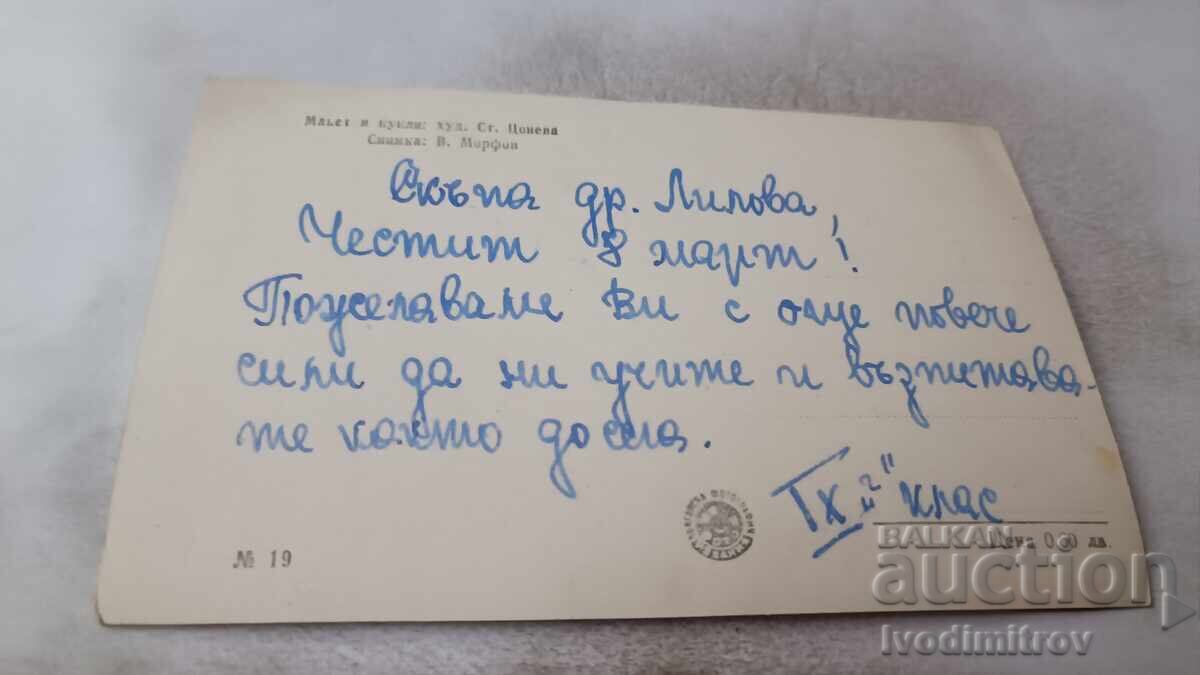 Макет и кукли: худ. Ст. Цонева
Снимка: В. Морфов
Скъпа др. Лилова,
Честит 8 март!
Пожелаваме Ви с още повече
сили да ни учите и възпитава-
те както досега.
IX "г" клас
№ 19
Цена 0,60 лв.
BALKAN
auction
Ivodimitrov